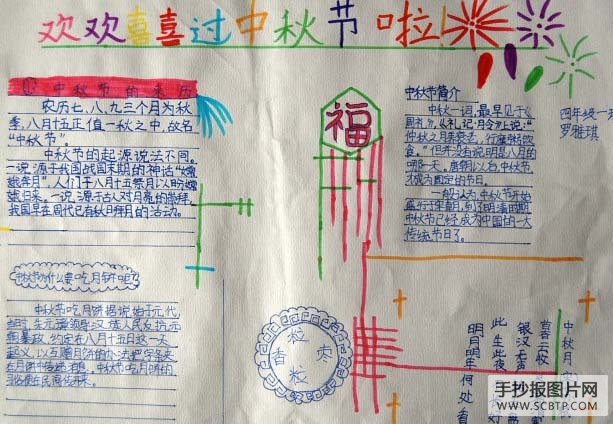 欢欢喜喜过中秋节啦!
中秋节的来历
农历七、八、九三个月为秋
季,八月十五正值一秋之中,故名
"中秋节"。
中秋节的起源说法不同。
一说源于我国战国末期的神话"嫦
娥奔月"。人们于八月十五祭月以盼嫦
娥归来。一说源于古人对月亮的崇拜,
我国早在周代已有秋月拜月的活动。
中秋节为什么要吃月饼呢?
中秋节吃月饼据说始于元代
当时,朱元璋领导汉族人民反抗元
朝暴政,约定在八月十五这一天
起义,以互赠月饼的办法把字条夹
在月饼中传递消息。中秋节吃月饼的
习俗便在民间传开来。
福
中秋节简介
中秋一词,最早见于《
周礼》,《礼记·月令》上说:"
仲秋之月养衰老,行糜粥饮
食。"但并没有说明是八月的
哪一天。唐朝以后,中秋节
才成为固定的节日。
一般认为,中秋节开始
盛行于宋朝,到了明清时期
中秋节已经成为中国的一大
传统节日了。
四年级一
罗雅琪
粒
枣
粒
香
中秋月
暮云收
银汉无声
此生此夜
明月明年何处看
手抄报图片网
WWW.SCBTP.COM